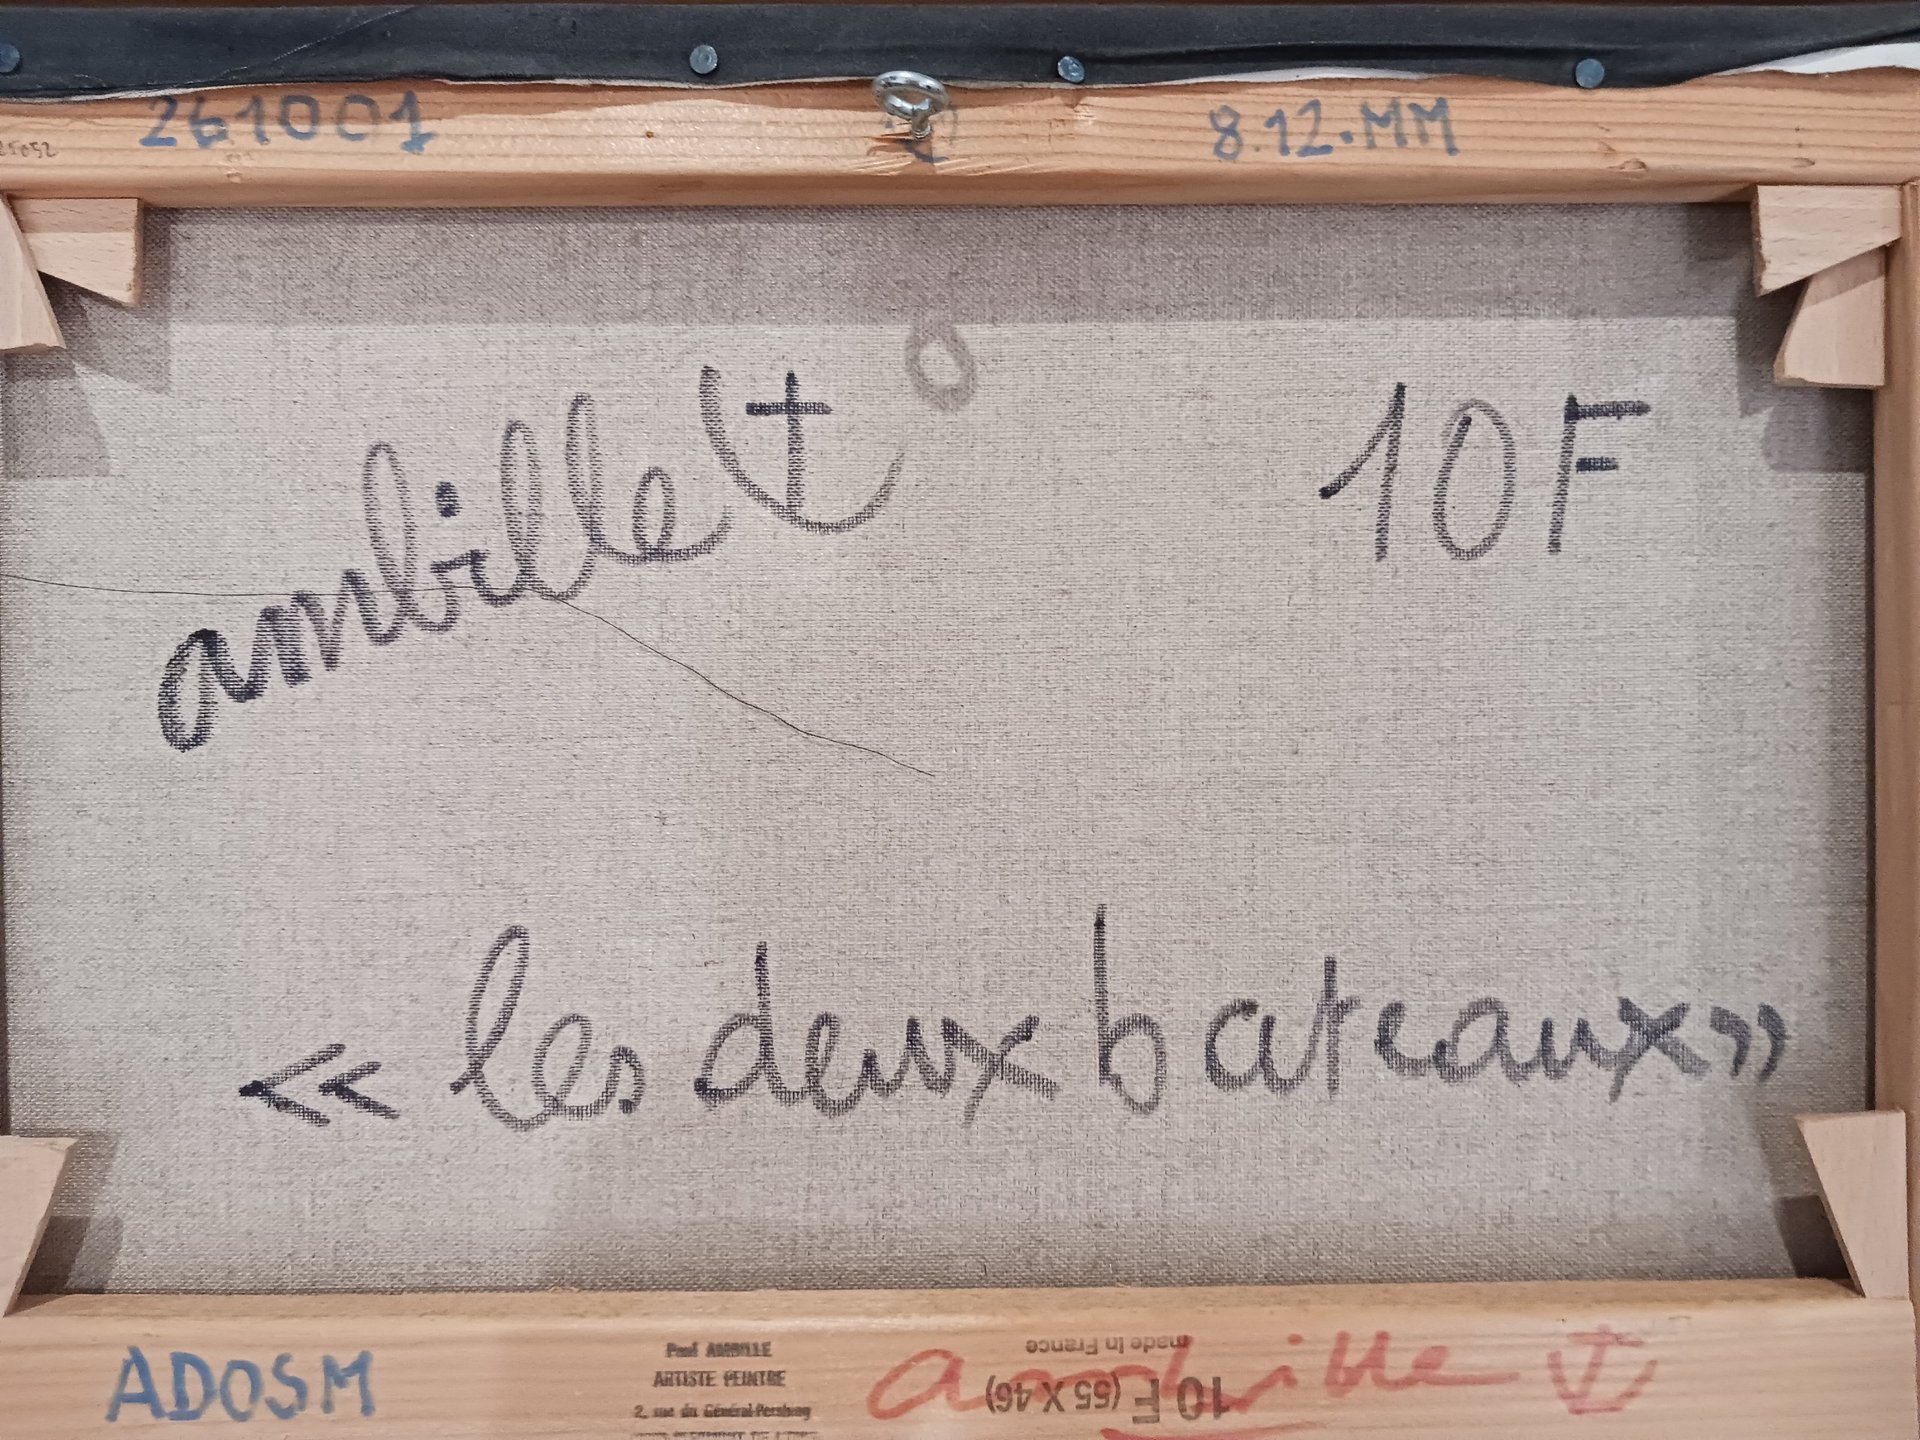 261001
8.12.MM
ambille
10F
« les deux bateaux »
ADOSM
Paul AMBILLE
ARTISTE PEINTRE
2, rue du Général Pershing
made in France
10 F (55 X 46)
ambille